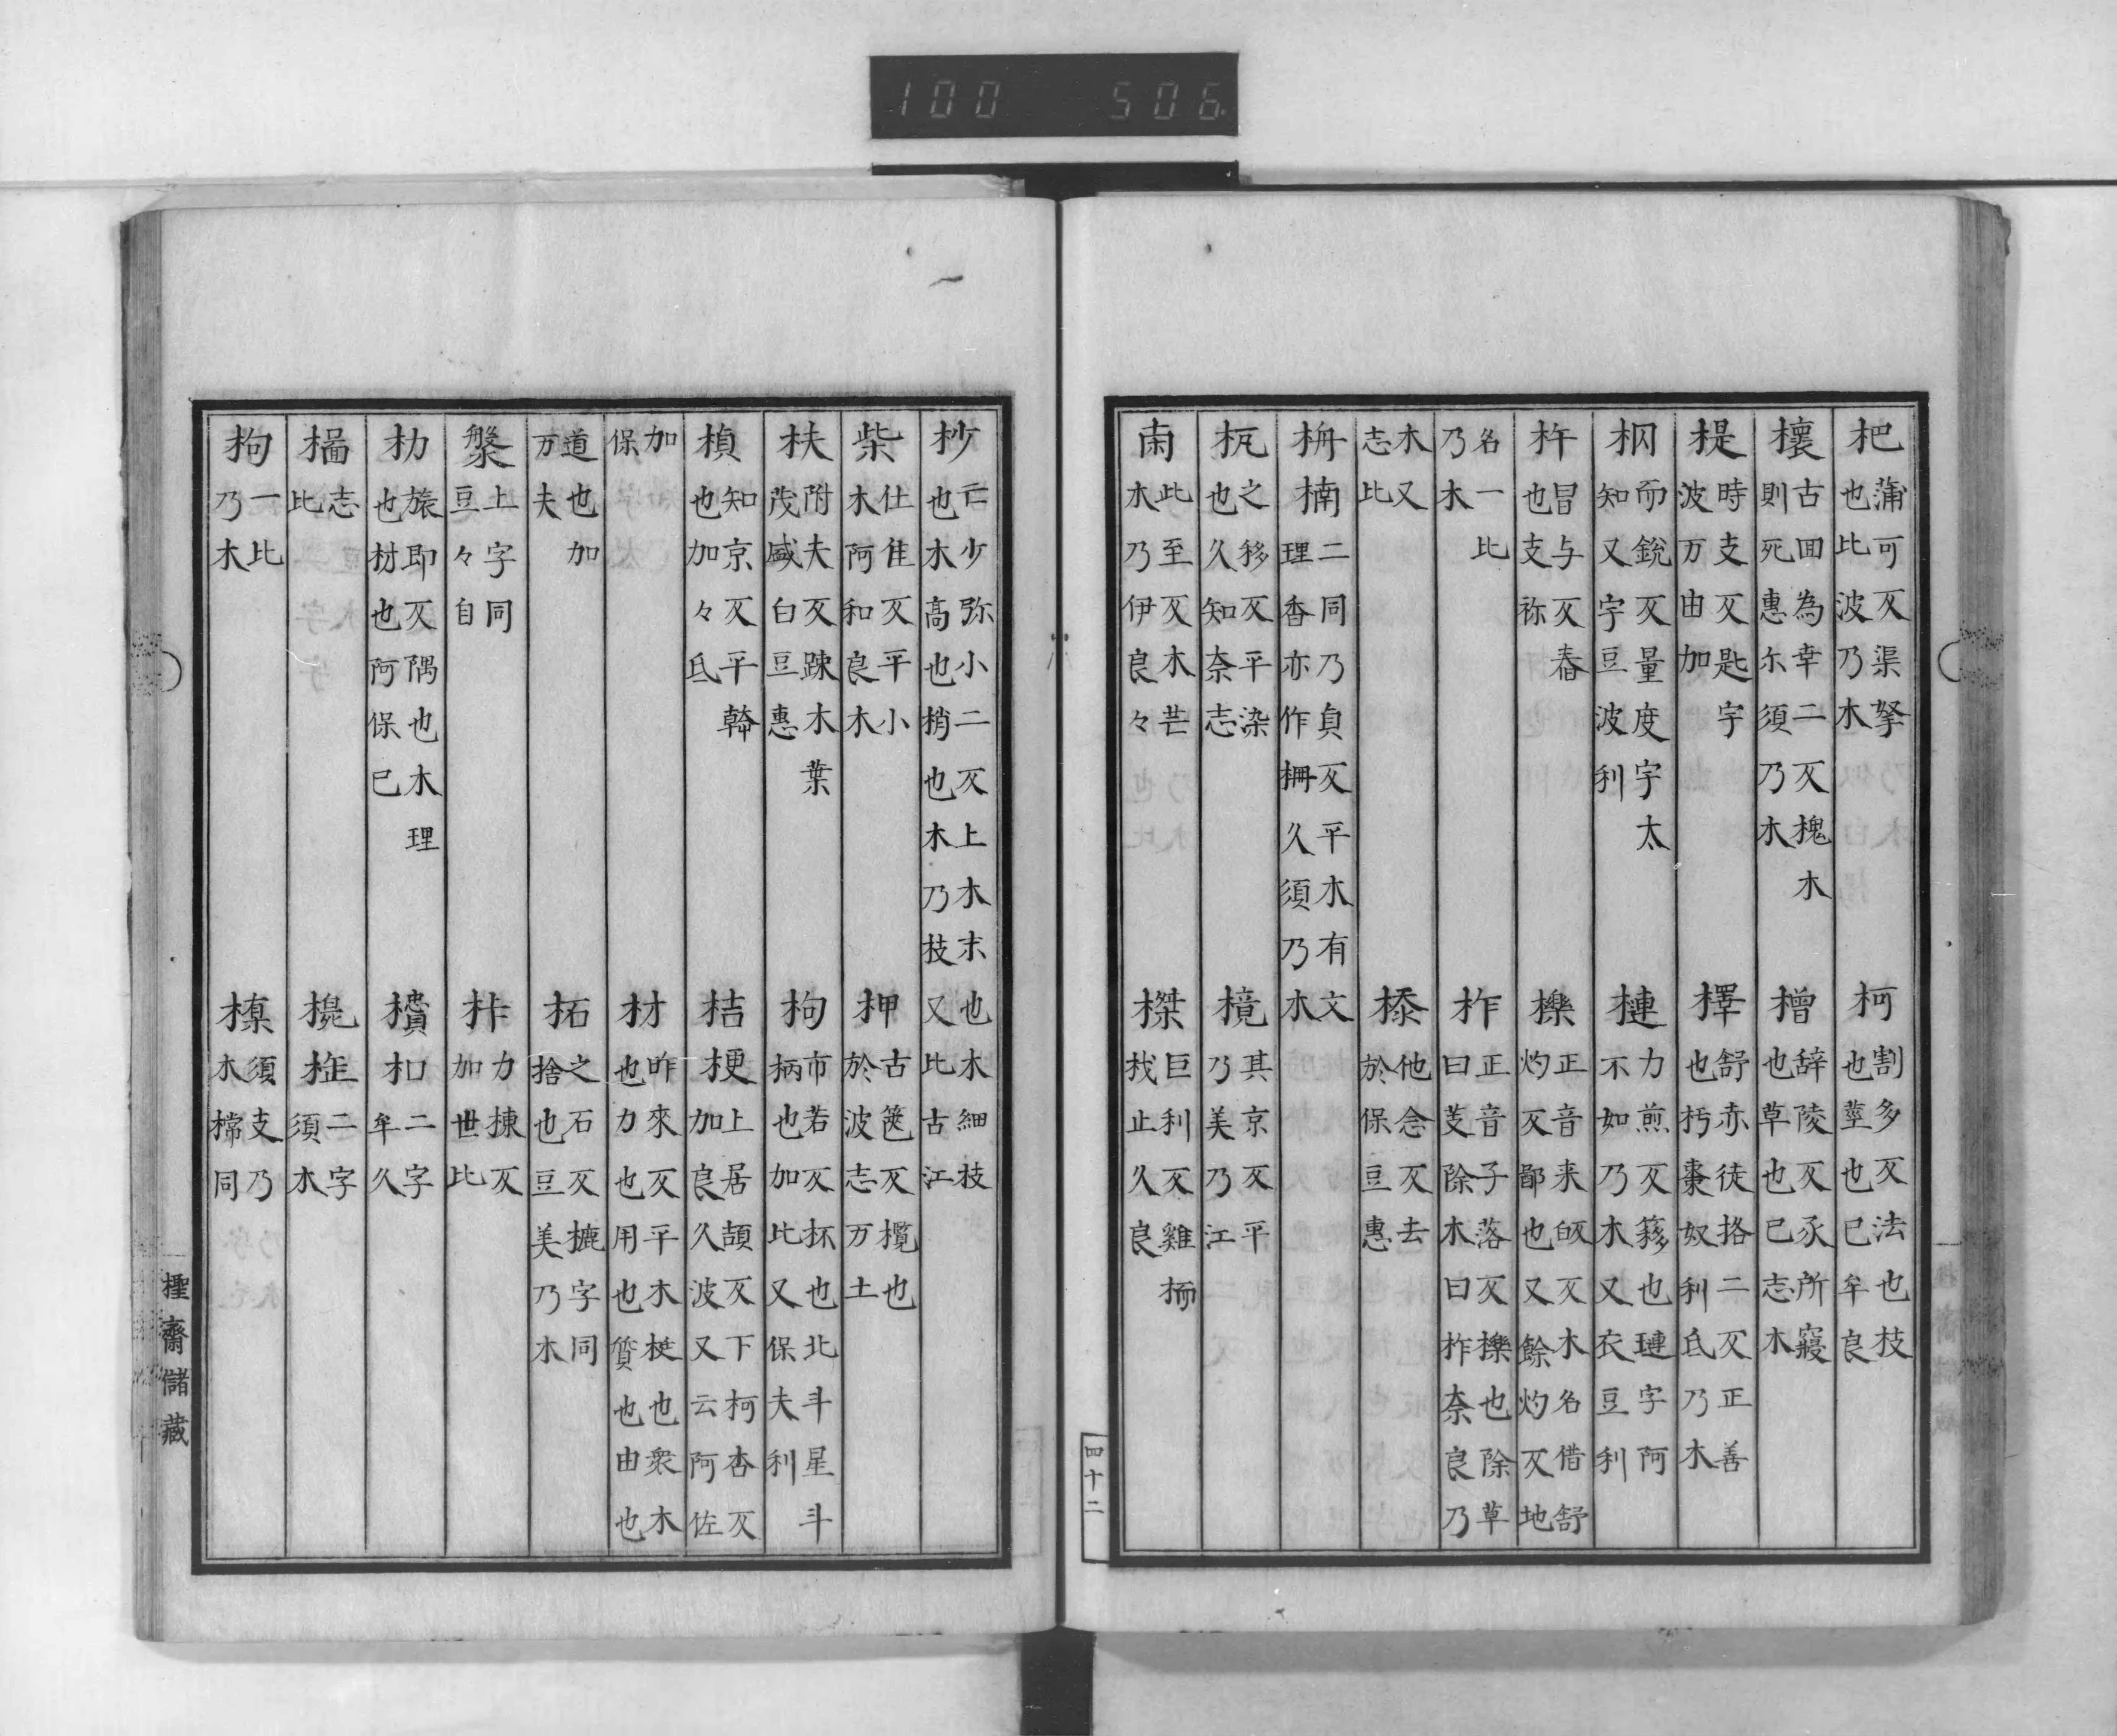 100 506
杷 蒲可反渠拏也比波乃木 柯 割多反法也枝也莖也已牟良
櫰 古回為幸二反槐木則死惠尓須乃木 橧 辞陵反承所寢也草也已志木
㮛 時支反匙字波万由加 檡 舒赤徒挌二反正善也朽棗奴利氐乃木
枘 而銳反量度字太知又字豆波利 槤 力煎反簃也璉字阿不如乃木又衣豆利
杵 昌与反舂也支祢 櫟 正音来的反木名借舒灼反鄙也又餘灼反地
名一比乃木 柞 正音子落反櫟也除草曰芟除木曰柞奈良乃
木又志比 㮇 他念反去於保豆惠
枏 楠 二同乃貞反平木有文理香亦作柟久須乃木
柢 之移反平染也久知奈志 樈 其京反平乃美乃江
南 此至反木芒木乃伊良々 榤 巨利反雞栖找止久良
四十二
杪 亡少弥小二反上木末也木細枝也木高也梢也木乃枝又比古江
柴 仕隹反平小木阿和良木 柙 古篋反檻也於波志万土
枎 附夫反踈木葉茂盛白豆惠 枸 市若反杯也北斗星斗柄也加比又保夫利
楨 知京反平榦也加々氐 桔 梗 上居頡反下柯杏反加良久波又云阿佐
加保 材 昨來反平木梃也衆木也力也用也質也由也
道也加万夫 柘 之石反摭字同捨也豆美乃木
槃 上字同豆々自 柞 力棟反加世比
朸 旅即反隅也木理也材也阿保己 櫝 朳 二字牟久
志比 二字須木
枸 一比乃木 㯃 須支乃木橖同
齋儲藏